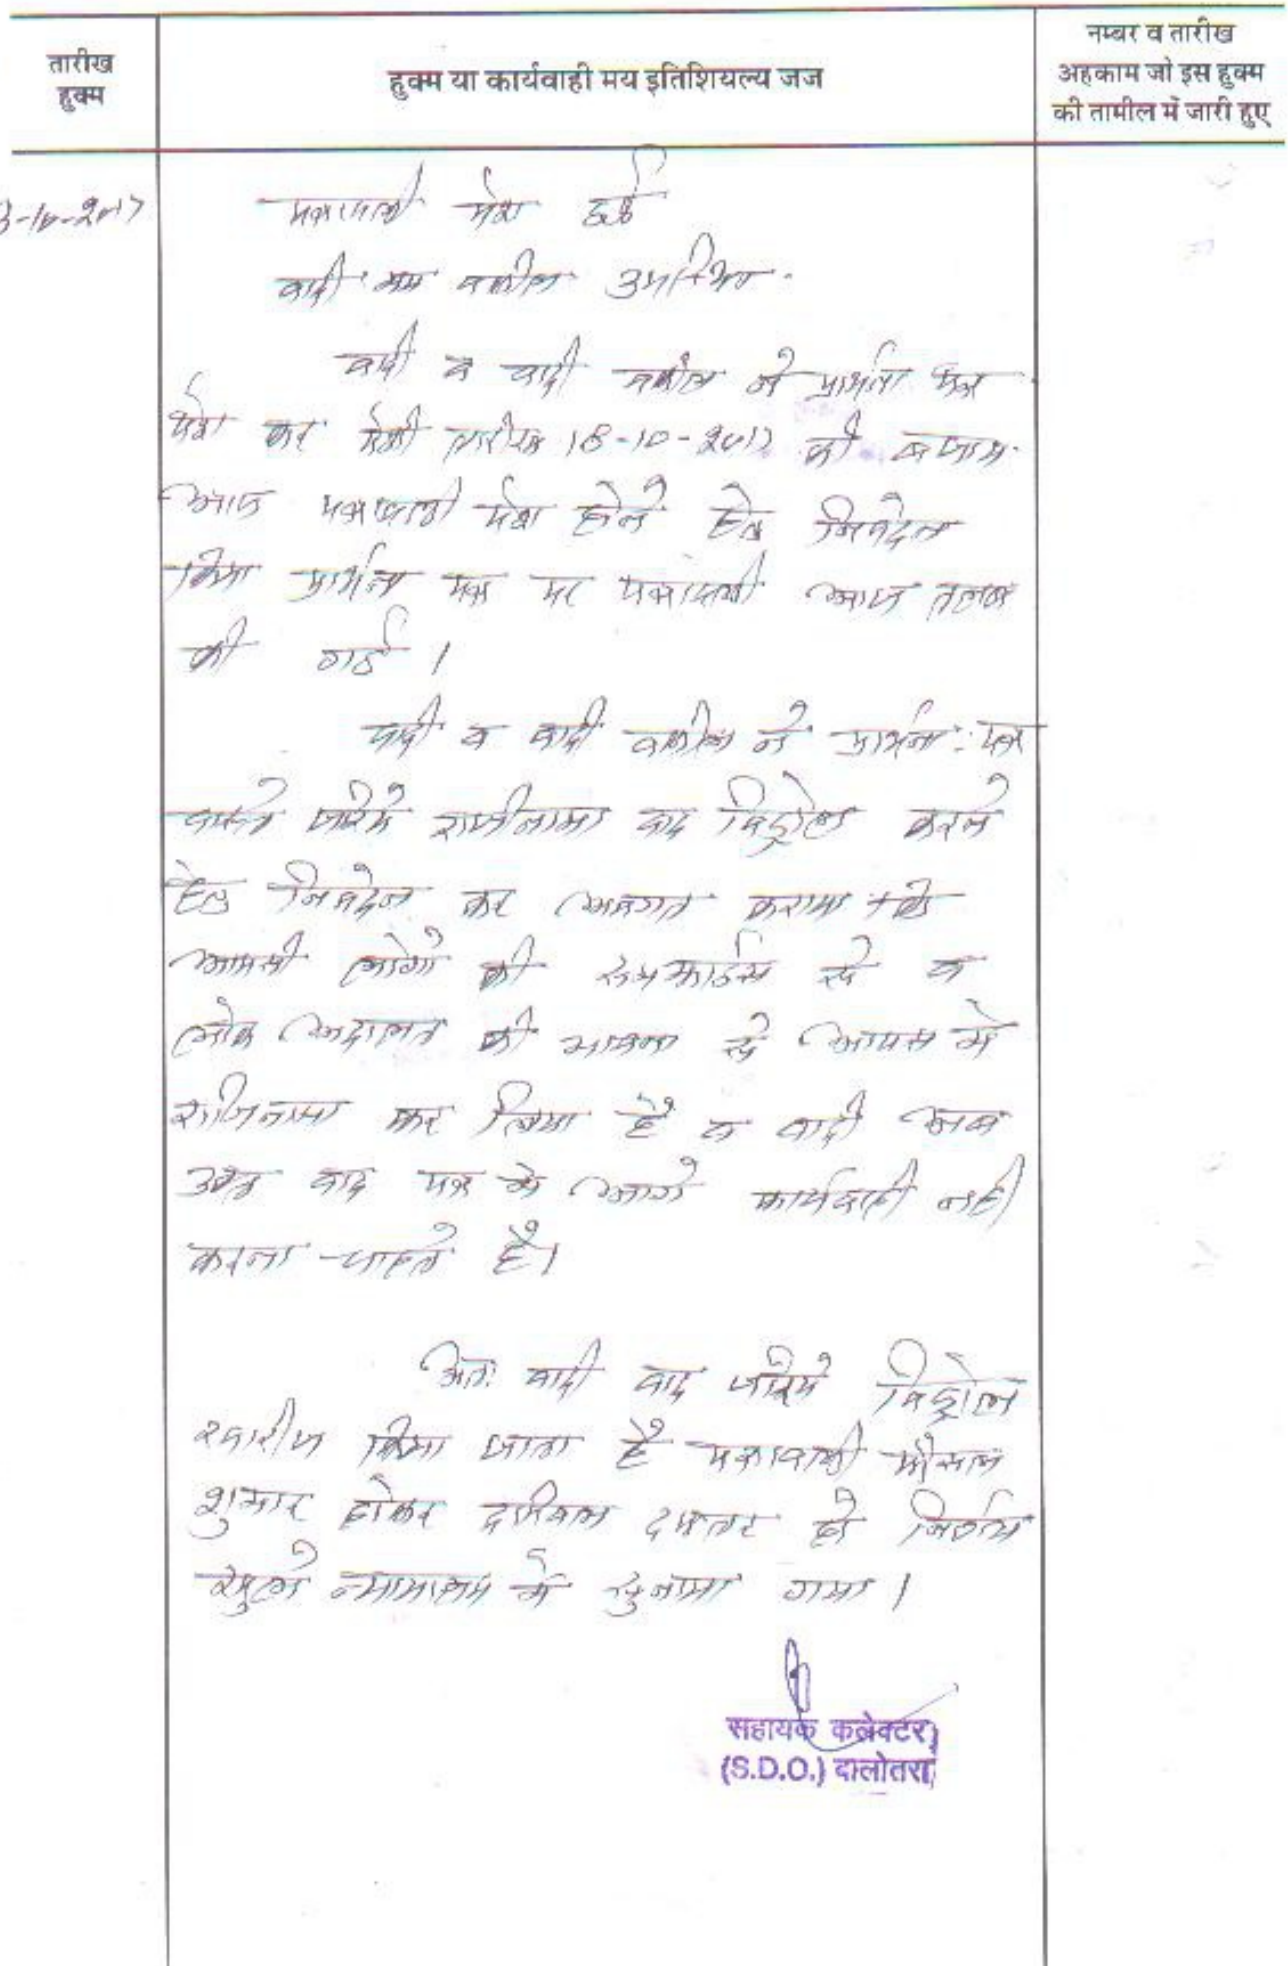 तारीख
हुक्म
हुक्म या कार्यवाही मय इतिशियल्य जज
नम्बर व तारीख
अहकाम जो इस हुक्म
की तामील में जारी हुए
3-10-2017
पत्रावली पेश हुई
वादी मय वकील उपस्थित
वादी व वादी वकील ने प्रार्थना पत्र
पेश कर पेशी तारीख 18-10-2017 की बजाय
आज पत्रावली पेश होने हेतु निवेदन
किया प्रार्थना पत्र पर पत्रावली आज तलब
की गई ।
वादी व वादी वकील ने प्रार्थना पत्र
वास्ते जरिये राजीनामा वाद विड्रोल करने
हेतु निवेदन कर अवगत कराया कि
आपसी लोगो की समझाईस से व
लोक अदालत की भावना से आपस मे
राजिनामा कर लिया है व वादी अब
उक्त वाद पत्र मे आगे कार्यवाही नही
करना चाहते है।
अतः वादी वाद जरिये विड्रोल
खारीज किया जाता है पत्रावली फैसल
शुमार होकर दाखिल दफ्तर हो निर्णय
खुले न्यायालय मे सुनाया गया ।
सहायक कलेक्टर
(S.D.O.) बालोतरा